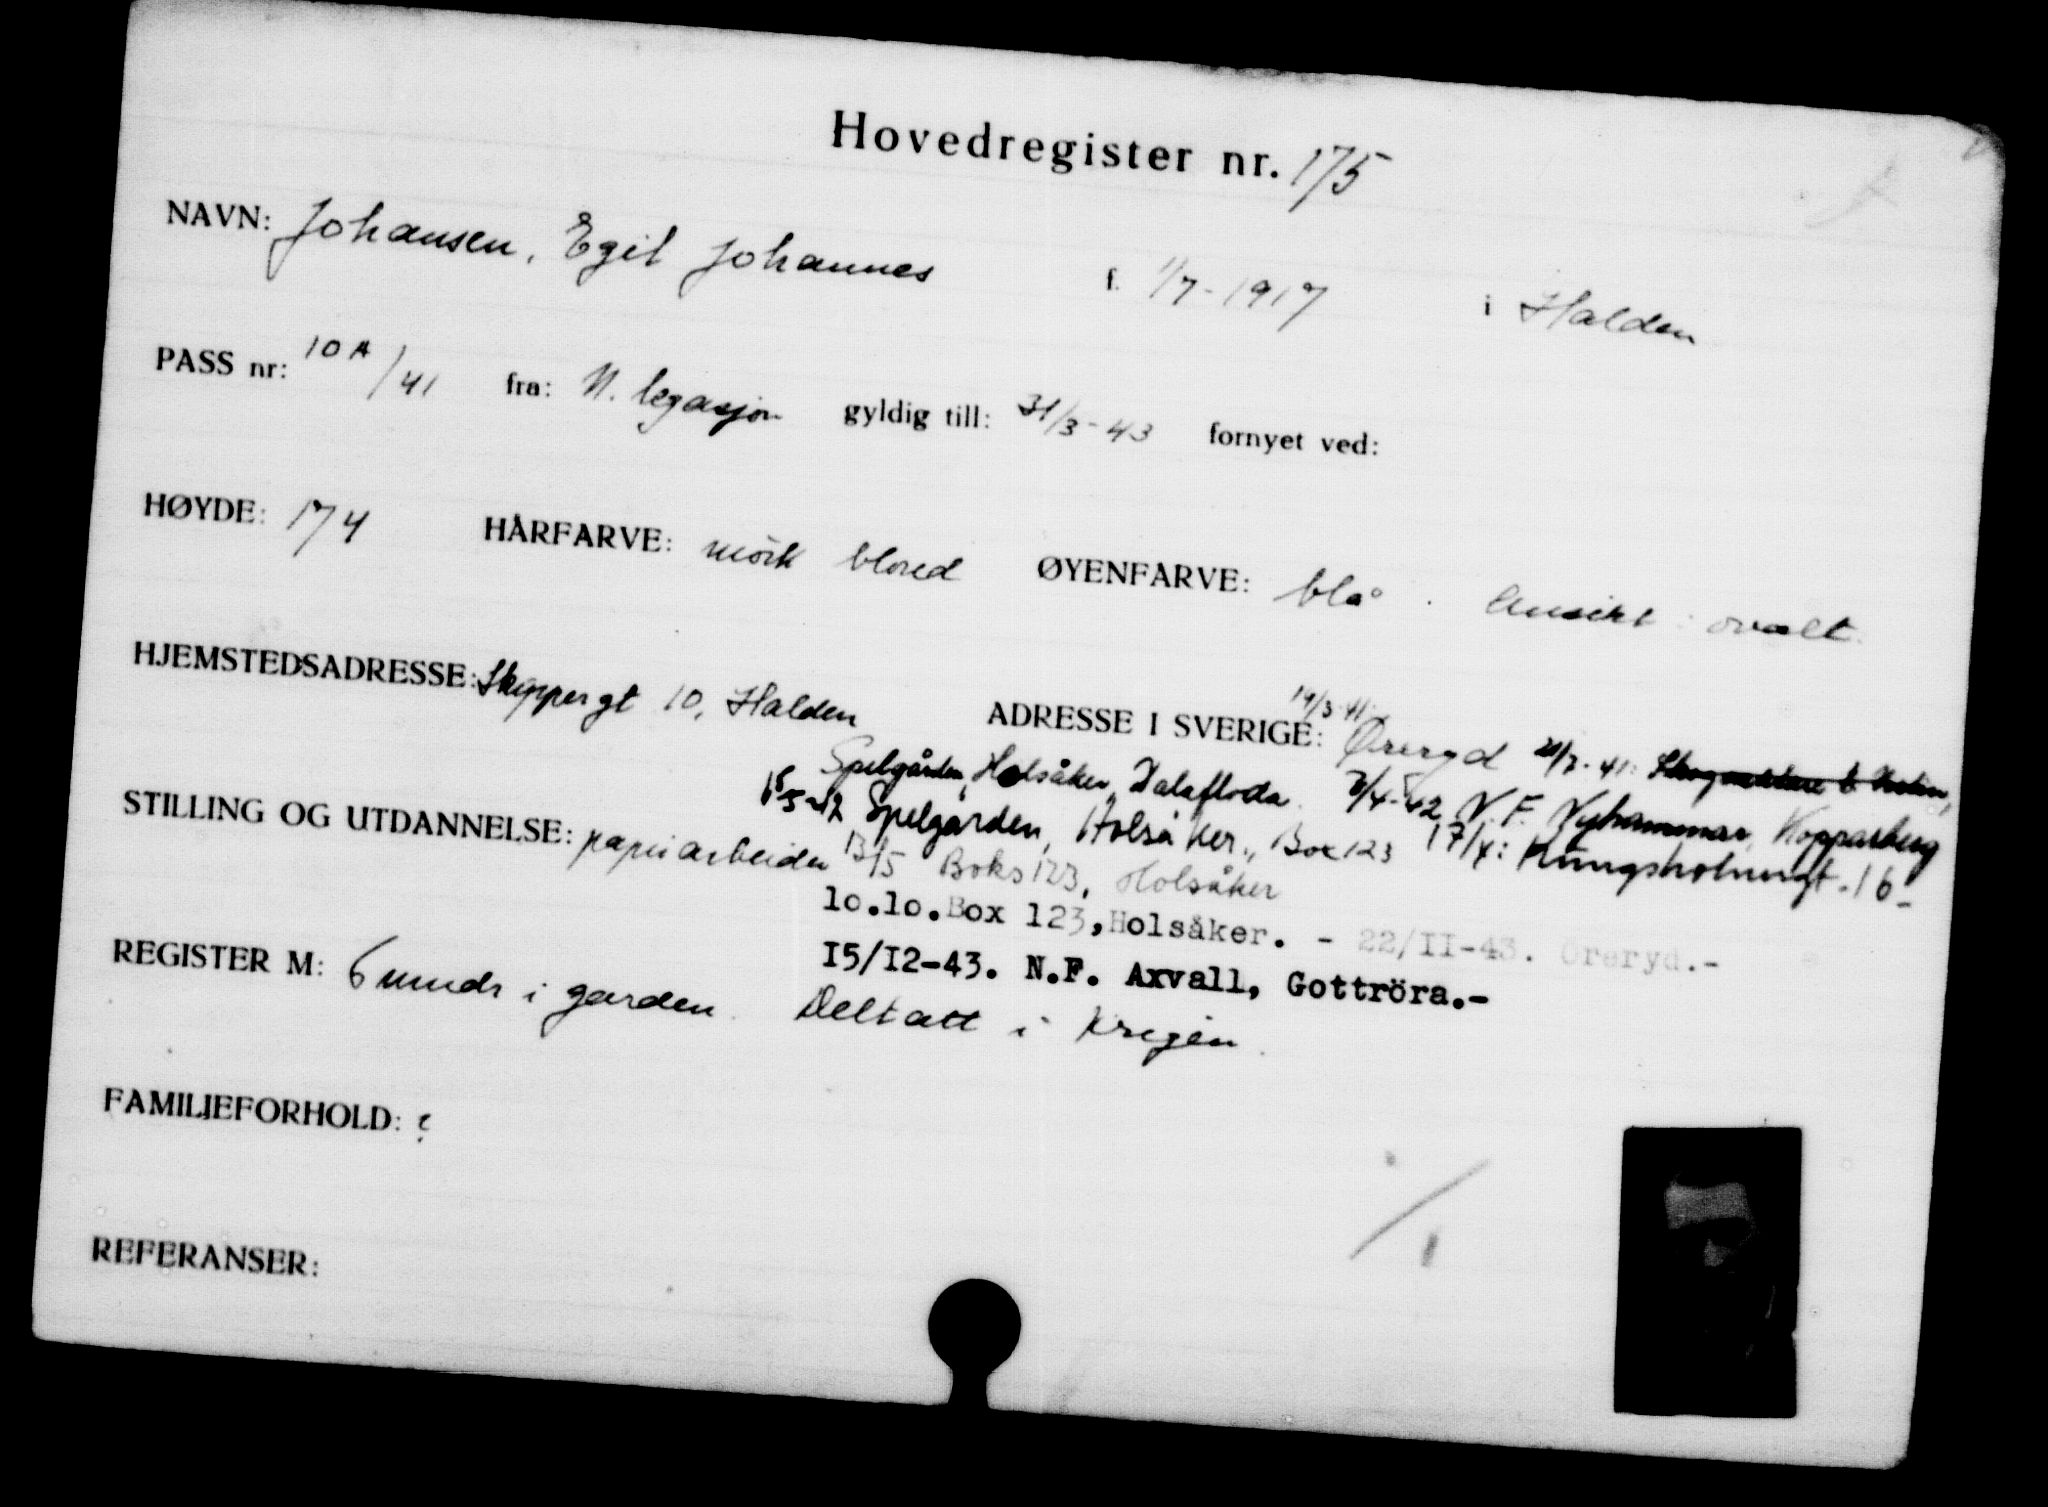 Hovedregister nr. 175
NAVN: Johansen, Egil Johannes f. 1/7-1917 i Halden
PASS nr: 10A/41 fra: N. legasjon gyldig till: 31/3-43 fornyet ved:
HØYDE: 174 HÅRFARVE: mörk blond ØYENFARVE: blå. Ansikt: ovalt.
HJEMSTEDSADRESSE: Skippergt 10, Halden ADRESSE I SVERIGE: 19/3-41: Øreryd
Spelgården, Holsåker, Dalafloda. 7/4-42 N.F. Nyhammar, Kopparberg
15/5-42 Spelgården, Holsåker., Box 123 17/4: Kungsholmsgt. 16-
STILLING OG UTDANNELSE: papirarbeider 13/5 Boks 123, Holsåker
10.10. Box 123, Holsåker. - 22/II-43. Öreryd.-
I5/I2-43. N.F. Axvall, Gottröra.-
REGISTER M: 6 mndr i garden. Deltatt i krigen.
FAMILIEFORHOLD: ?
REFERANSER: